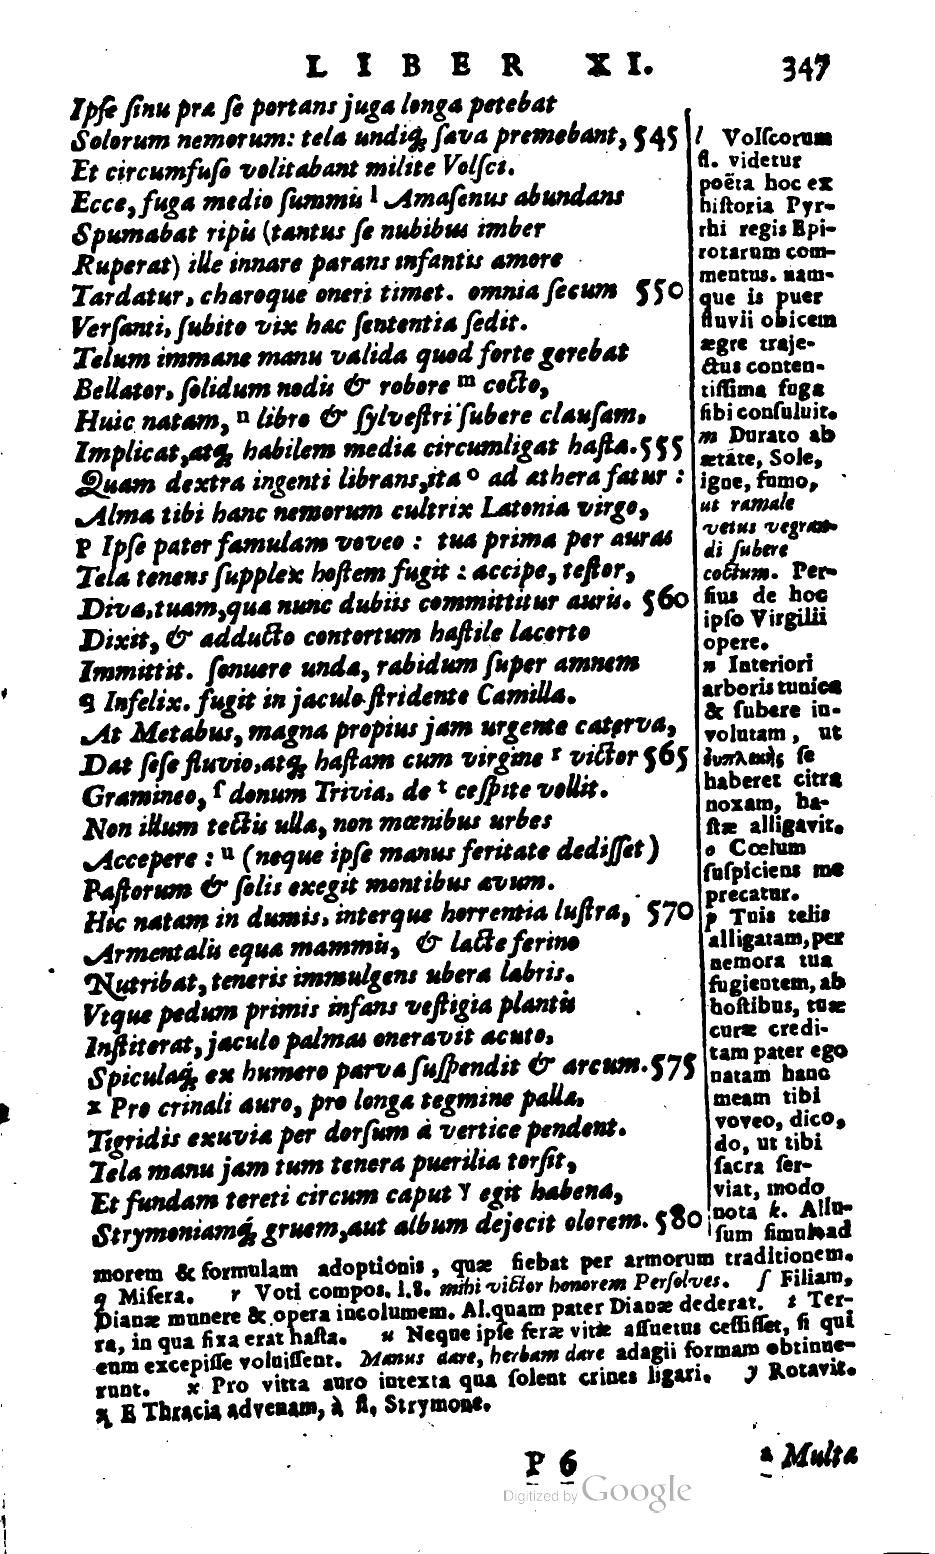 LIBER XI. 347
Ipse sinu præ se portans juga longa petebat
Solorum nemorum: tela undiq; sæva premebant, 545
Et circumfuso volitabant milite Volsci.
Ecce, fugæ medio summis l Amasenus abundans
Spumabat ripis (tantus se nubibus imber
Ruperat) ille innare parans infantis amore
Tardatur, charoque oneri timet. omnia secum 550
Versanti, subito vix hæc sententia sedit.
Telum immane manu valida quod forte gerebat
Bellator, solidum nodis & robore m cocto,
Huic natam, n libro & sylvestri subere clausam,
Implicat, atq; habilem mediæ circumligat hastæ. 555
Quam dextra ingenti librans, ita o ad æthera fatur:
Alma tibi hanc nemorum cultrix Latonia virgo,
p Ipse pater famulam voveo: tua prima per auras
Tela tenens supplex hostem fugit: accipe, testor,
Diva, tuam, quæ nunc dubiis committitur auris. 560
Dixit, & adducto contortum hastile lacerto
Immittit. sonuere undæ, rabidum super amnem
q Infelix. fugit in jaculo stridente Camilla.
At Metabus, magna propius jam urgente caterva,
Dat sese fluvio, atq; hastam cum virgine r victor 565
Gramineo, ſ donum Triviæ, de t cespite vellit.
Non illum tectis ullæ, non mœnibus urbes
Accepere: u (neque ipse manus feritate dedisset)
Pastorum & solis exegit montibus ævum.
Hic natam in dumis, interque horrentia lustra, 570
Armentalis equæ mammis, & lacte ferino
Nutribat, teneris immulgens ubera labris.
Vtque pedum primis infans vestigia plantis
Institerat, jaculo palmas oneravit acuto,
Spiculaq; ex humero parvæ suspendit & arcum. 575
x Pro crinali auro, pro longæ tegmine pallæ,
Tigridis exuviæ per dorsum à vertice pendent.
Tela manu jam tum tenera puerilia torsit,
Et fundam tereti circum caput y egit habena,
Strymoniamq; gruem, aut album dejecit olorem. 580
l Volscorum
fl. videtur
poëta hoc ex
historia Pyr-
rhi regis Epi-
rotarum com-
mentus. nam-
que is puer
fluvii obicem
ægre traje-
ctus conten-
tissima fuga
sibi consuluit.
m Durato ab
ætate, Sole,
igne, fumo,
ut ramale
vetus vegran-
di subere
coctum. Per-
sius de hoc
ipso Virgilii
opere.
n Interiori
arboris tunica
& subere in-
volutam, ut
se
haberet citra
noxam, ha-
stæ alligavit.
o Cœlum
suspiciens me
precatur.
p Tuis telis
alligatam, per
nemora tua
fugientem, ab
hostibus, tuæ
curæ credi-
tam pater ego
natam hanc
meam tibi
voveo, dico,
do, ut tibi
sacra ser-
viat, modo
nota k. Allu-
sum simul ad
morem & formulam adoptionis, quæ fiebat per armorum traditionem.
q Misera. r Voti compos. l.8. mihi victor honorem Persolves. ſ Filiam,
Dianæ munere & opera incolumem. Al. quam pater Dianæ dederat. t Ter-
ra, in qua fixa erat hasta. u Neque ipse feræ vitæ assuetus cessisset, si qui
eum excepisse voluissent. Manus dare, herbam dare adagii formam obtinue-
runt. x Pro vitta auro intexta qua solent crines ligari. y Rotavit.
z E Thracia advenam, à fl. Strymone.
P 6 a Multa
Digitized by Google